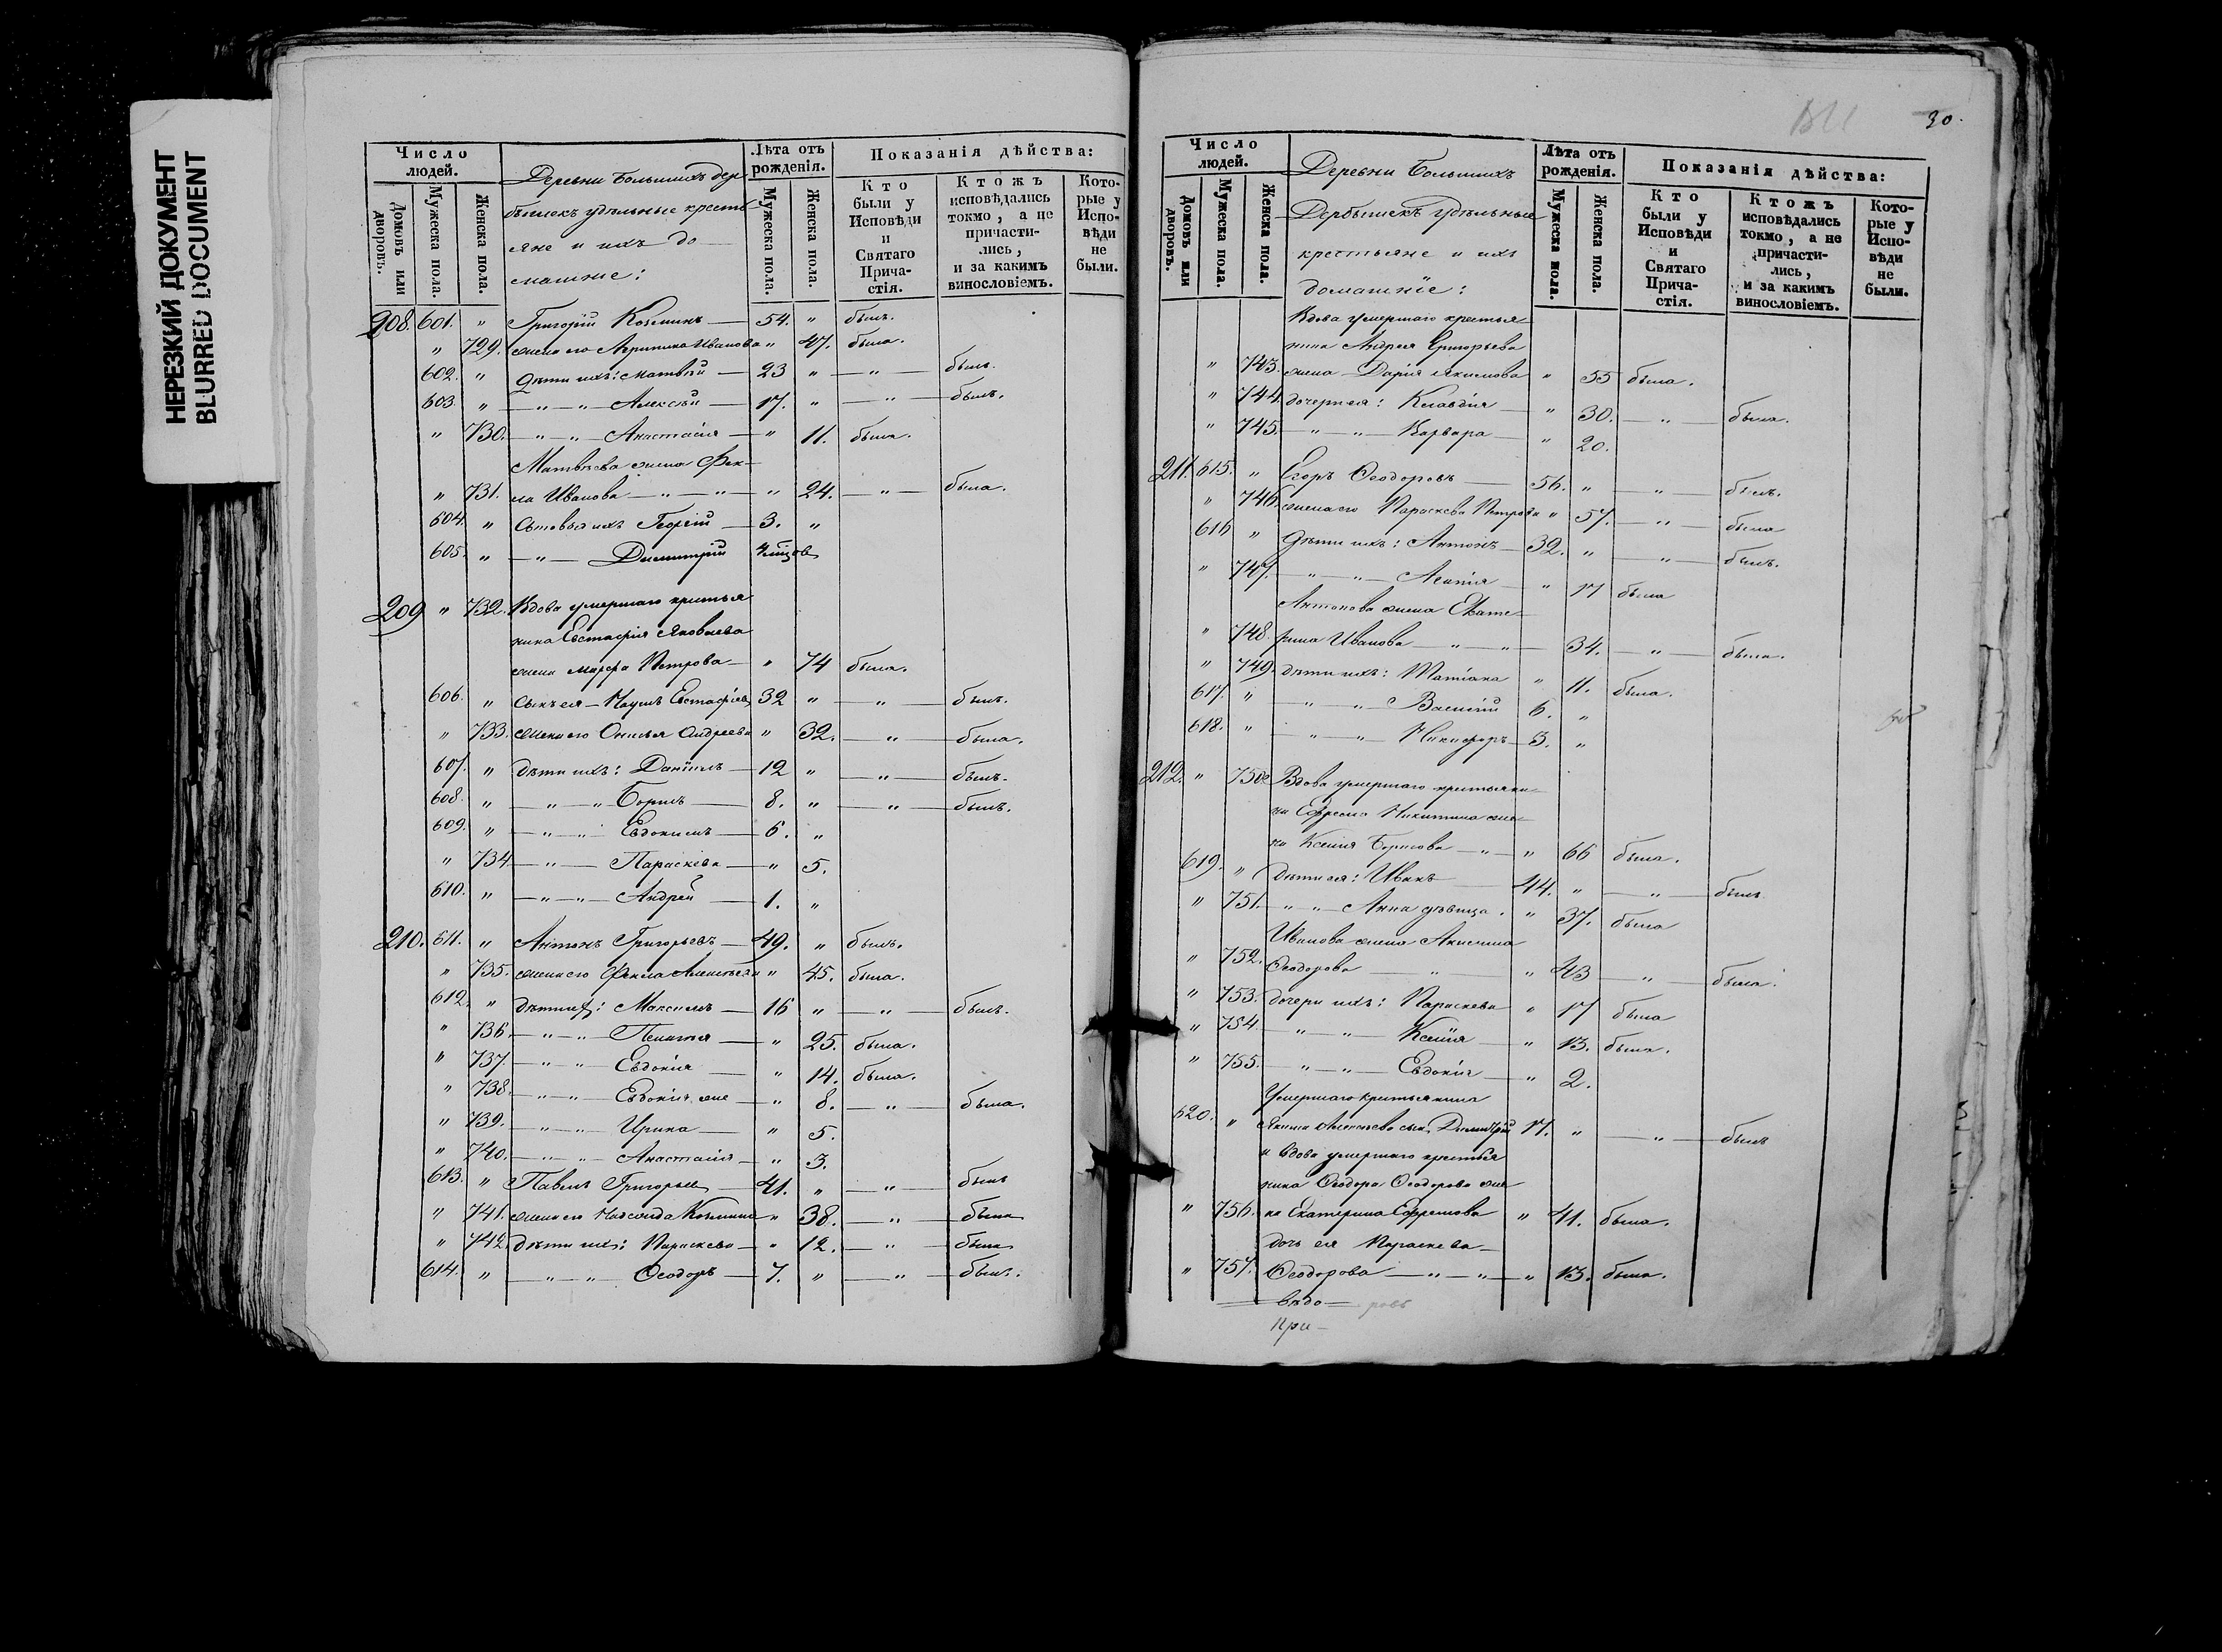 НЕРЕЗКИЙ ДОКУМЕНТ
BLURRED DOCUMENT
Число людей.
Домовъ или дворовъ.
Мужеска пола.
Женска пола.
Деревни Большихъ Дер-
бышекъ удѣльные кресть-
яне и ихъ до-
машніе:
Лѣта отъ рожденія.
Мужеска пола.
Женска пола.
Показанія дѣйства:
Кто были у Исповѣди и Святаго Прича-стія.
Ктожъ исповѣдались токмо, а не причасти-лись, и за какимъ винословіемъ.
Кото-рые у Испо-вѣди не были.
208. 601. " Григорій Козминъ — 54. " былъ.
" 729. жена его Агрипина Иванова " 47. была.
602. " дѣти ихъ: Матвѣй — 23 " — " — былъ.
603. " — " — " — Алексѣй — 17. " — " — былъ.
" 730. — " — " — Анастасія — " 11. была.
Матвѣева жена Фек-
" 731. ла Иванова — " — " — " 24. — " — была.
604. " Сыновья ихъ Георгій — 3. "
605. " — " — Димитрій
209 " 732. Вдова умершаго крестья
нина Евстафія Яковлева
жена Марфа Петрова — " 74 была.
606. " Сынъ ея — Наумъ Евстафіевъ 32 " — " — былъ.
" 733. жена его Онисья Андреева " 32. — " — была.
607. " дѣти ихъ: Даніилъ — 12 " — " — былъ.
608. " — " — " Борисъ — 8. " — " — былъ.
609. " — " — " Евдокимъ — 6. "
" 734 — " — Параскева — " 5.
610. " — " — " — Андрей — 1. "
210. 611. " Антонъ Григорьевъ — 49. " былъ.
" 735. жена его Фекла " 45. была.
612. " дѣти ихъ: Максимъ — 16 " — " — былъ.
" 736. — " — " — Пелагія — " 25. была.
" 737. — " — " — Евдокія — " 14. была.
" 738. — " — " — Евдокія же " 8. — " — была.
" 739. — " — " — Ирина — " 5.
" 740. — " — " — Анастасія — " 3.
613. " Павелъ Григорьевъ — 41. " — " — былъ
" 741. жена его Козмина " 38. — " — была
" 742. дѣти ихъ: Параскева — " 12. — " — была
614. " — " — " — Ѳеодоръ — 7. " — " — былъ.
30.
Число людей.
Домовъ или дворовъ.
Мужеска пола.
Женска пола.
Деревни Большихъ
Дербышекъ удѣльные
крестьяне и ихъ
домашніе:
Лѣта отъ рожденія.
Мужеска пола.
Женска пола.
Показанія дѣйства:
Кто были у Исповѣди и Святаго Прича-стія.
Ктожъ исповѣдались токмо, а не причасти-лись, и за какимъ винословіемъ.
Кото-рые у Испо-вѣди не были.
Вдова умершаго крестья-
нина Андрея Григорьева
" 743. жена Дарія Якимова " 55 была.
" 744. дочери ея: Клавдія — " 30. — " — была.
" 745. — " — " — Варвара — " 20.
211. 615. " Егоръ Ѳеодоровъ — 56. " — " — былъ.
" 746. жена его Параскева Петрова " 57. — " — была
616 " дѣти ихъ: Антонъ — 32. " — " — былъ.
" 747. — " — " — " 17 была
Антонова жена Екате-
" 748. рина Иванова — " — " — 34. — " — была.
" 749. дѣти ихъ: Татіана " 11. была.
617. " " " Василій 6. "
618. " " " Никифоръ — 3. "
212. " 750 Вдова умершаго крестьяни-
на Ефрема Никитина же-
на Ксенія Борисова — " — " 66 была.
619. " Дѣти ея: Иванъ — 44. " — " — былъ
" 751. — " " — Анна дѣвица. " 37. была
Иванова жена Акилина
" 752. Ѳеодорова " " 43 — " — была.
" 753. дочери ихъ: Параскева " 17 была
" 754. — " — " — Ксенія — " 13. была.
" 755. — " — " — Евдокія — " 2.
Умершаго крестьянина
620. " Якима сынъ Димитрій 17. " — " — былъ
и вдова умершаго крестья
нина Ѳеодора Ѳеодорова же-
" 756. на Екатерина Ефремова " 41. была.
дочь ея Параскева —
" 757. Ѳеодорова — " — " — " 13. была.
При-